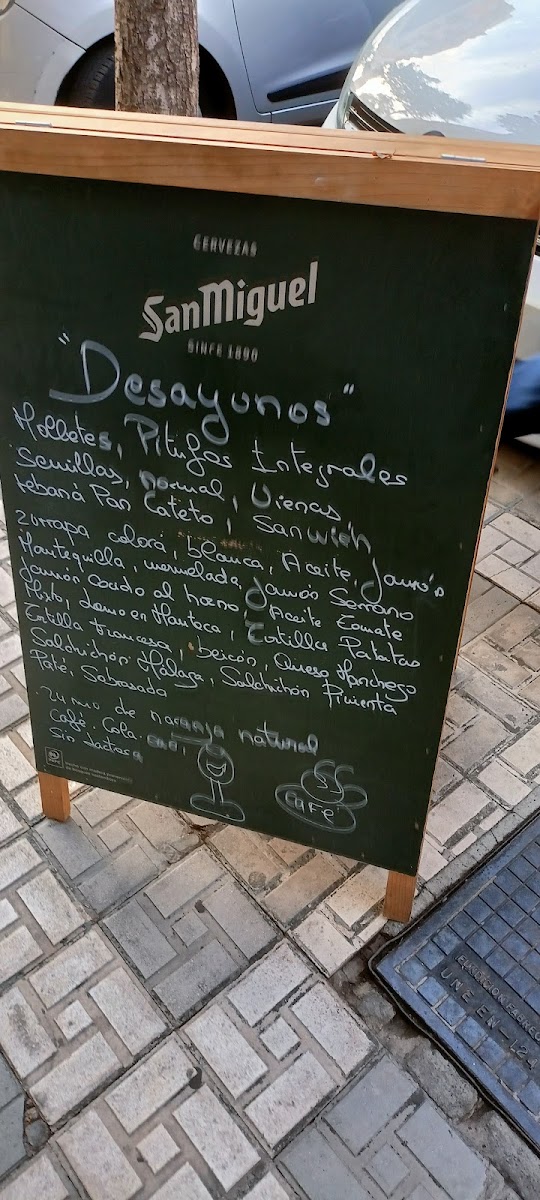 CERVEZAS
SanMiguel
SINCE 1890
"Desayunos"
Molletes, Pitufos Integrales
Semillas, normal, Vienas
rebaná Pan Cateto, Sanwish
Zurrapa colorá, blanca, Aceite, Jamón
Mantequilla, mermelada, Jamón Serrano
Jamón cocido al horno, Aceite Tomate
Mixto, Lomo en Manteca, Tortilla Patatas
Tortilla francesa, beicón, Queso Manchego
Salchichón Málaga, Salchichón Pimienta
Paté, Sobrasada
Zumo de naranja natural
Café. Cola-
Sin Lactosa
CAFÉ
UNE EN-124